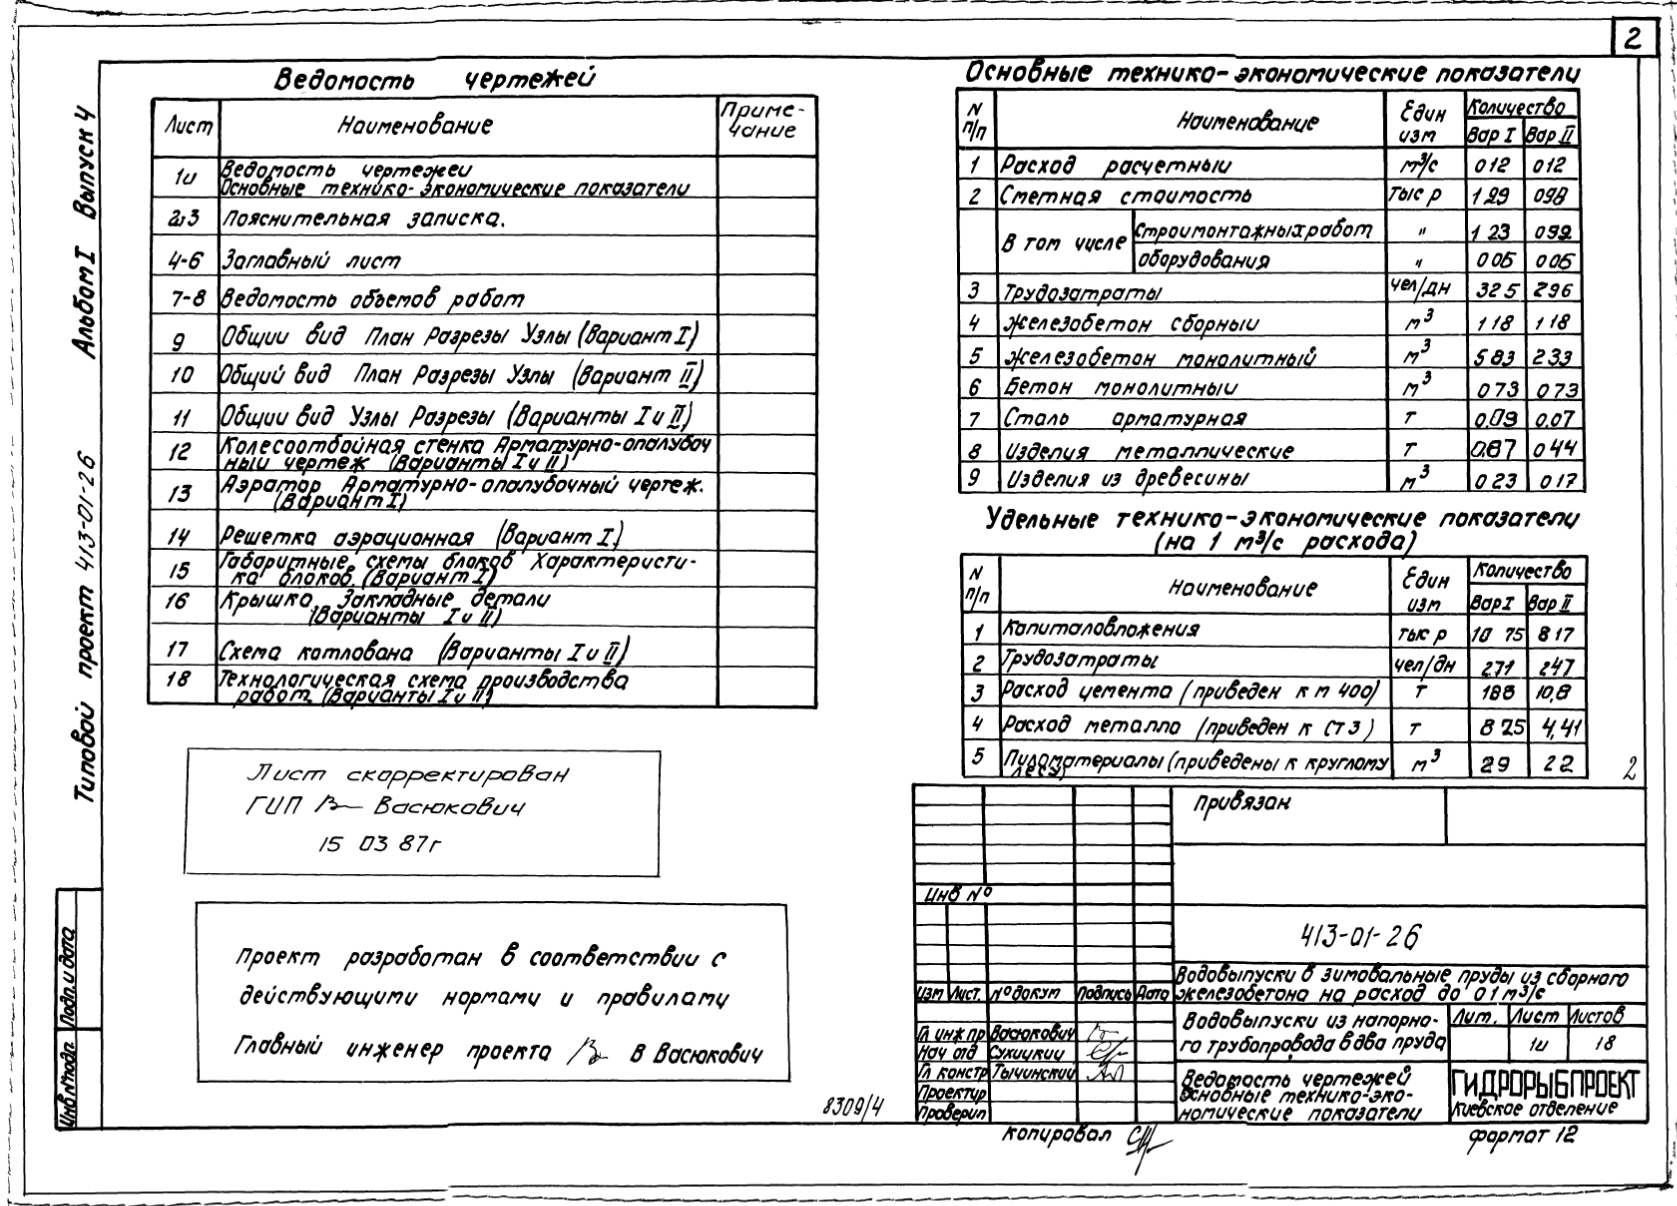 2
Типовой проект 413-01-26 Альбом I Выпуск 4
Ведомость чертежей
Лист Наименование Приме-
чание
1и Ведомость чертежеи
Основные технико-экономические показатели
2и3 Пояснительная записка.
4-6 Заглавный лист
7-8 Ведомость объемов работ
9 Общии вид План Разрезы Узлы (Вариант I)
10 Общий вид План Разрезы Узлы (Вариант II)
11 Общии вид Узлы Разрезы (Варианты I и II)
12 Колесоотбойная стенка Арматурно-опалубоч
ный чертеж (Варианты I и II)
13 Аэратор Арматурно-опалубочный чертеж.
(Вариант I)
14 Решетка аэрационная (Вариант I)
15 Габаритные схемы блоков Характеристи-
ка блоков. (Вариант I)
16 Крышка Закладные детали
(Варианты I и II)
17 Схема котлована (Варианты I и II)
18 Технологическая схема производства
работ. (Варианты I и II)
Основные технико-экономические показатели
N п/п Наименование Един изм Количество
Вар I Вар II
1 Расход расчетныи м³/с 012 012
2 Сметная стоимость тыс р 1 29 098
В том числе Строимонтажных работ " 1 23 092
оборудования " 006 006
3 Трудозатраты чел/дн 32 5 296
4 Железобетон сборныи м³ 1 18 1 18
5 Железобетон монолитный м³ 5 83 2 33
6 Бетон монолитныи м³ 0 73 0 73
7 Сталь арматурная т 0,09 0.07
8 Изделия металлические т 0,87 0 44
9 Изделия из древесины м³ 0 23 0 17
Удельные технико-экономические показатели
(на 1 м³/с расхода)
N п/п Наименование Един изм Количество
Вар I Вар II
1 Капиталовложения тыс р 10 75 8 17
2 Трудозатраты чел/дн 271 247
3 Расход цемента (приведен к м 400) т 188 10,8
4 Расход металла (приведен к СТ 3) т 8 25 4,41
5 Пиломатериалы (приведены к круглому
лесу) м³ 29 22
2
Лист скорректирован
ГИП Васюкович
15 03 87г
Проект разработан в соответствии с
действующими нормами и правилами
Главный инженер проекта В Васюкович
Привязан
Инв №
413-01-26
Водовыпуски в зимовальные пруды из сборного
железобетона на расход до 0 1 м³/с
Изм Лист. № докум Подпись Дата
Водовыпуски из напорно-
го трубопровода в два пруда
Лит. Лист Листов
1и 18
Гл инж пр Васюкович
Нач отд Сухицкии
Гл констр Тычинскии
Проектир
Проверил
Ведомость чертежей
Основные технико-эко-
номические показатели
ГИДРОРЫБПРОЕКТ
Киевское отделение
Подп. и дата
Инв № подл
8309/4
копировал
формат 12